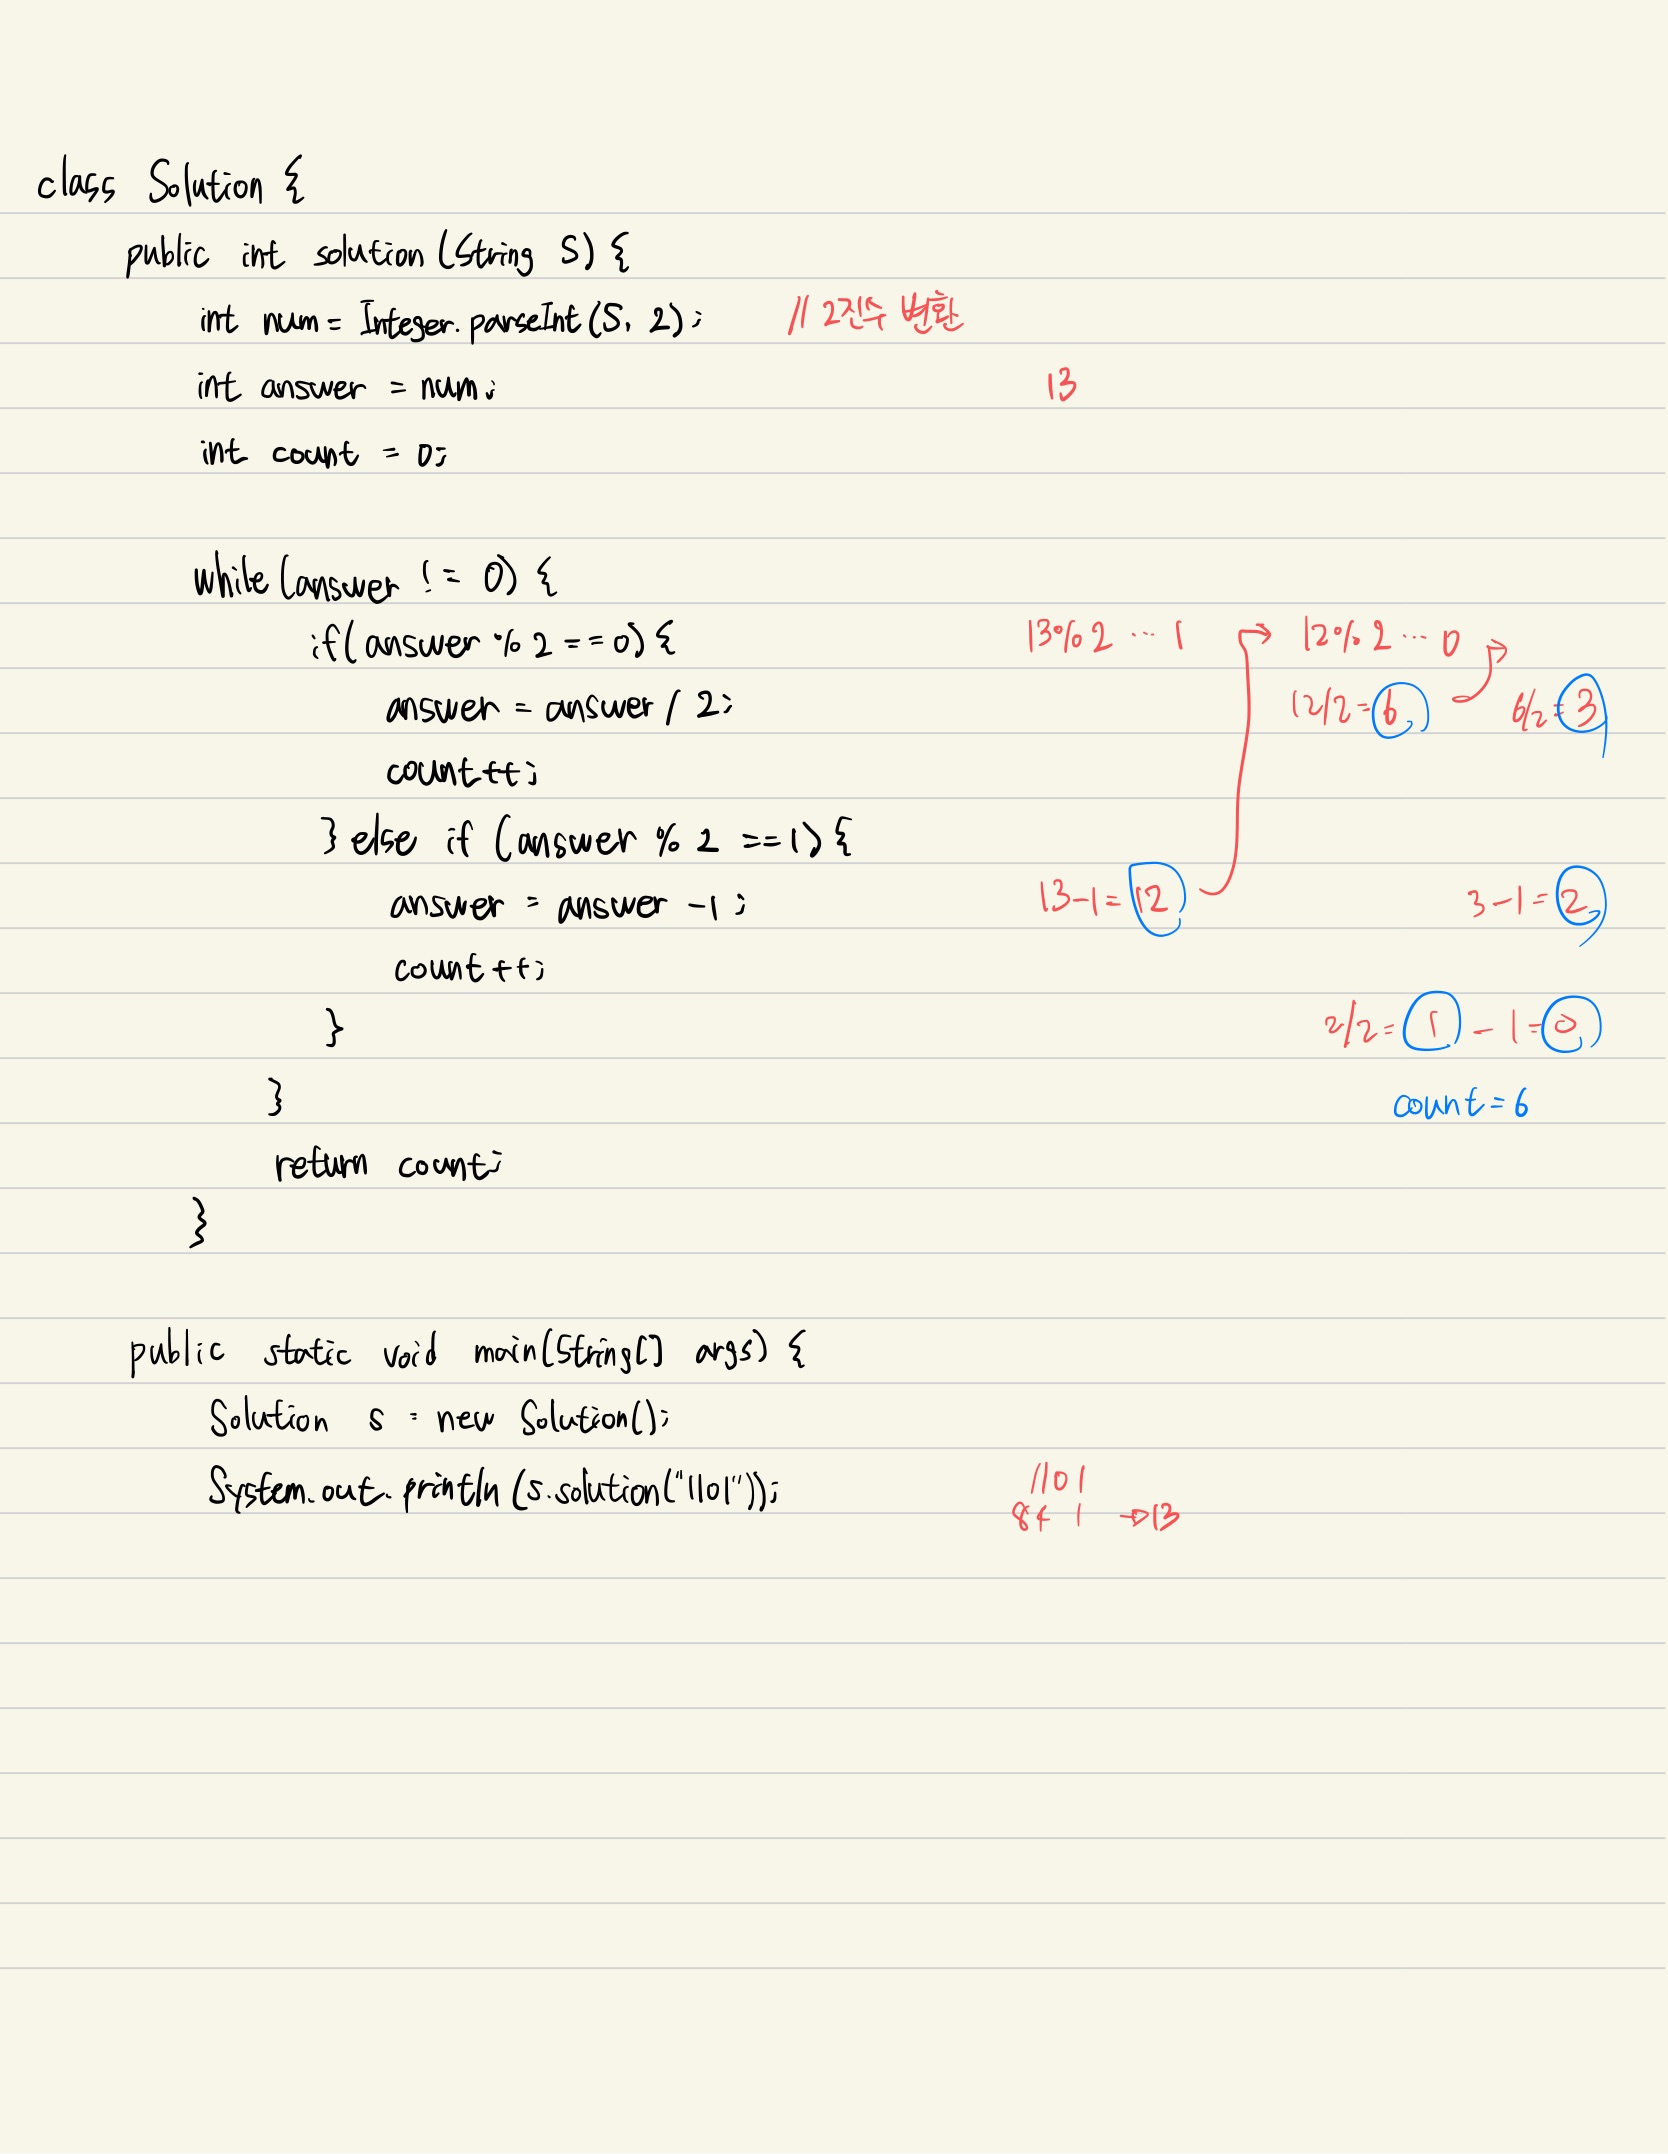 class Solution {
public int solution (String S) {
int num = Integer.parseInt(S, 2); // 2진수 변환
int answer = num; 13
int count = 0;
while (answer != 0) {
if( answer % 2 == 0) { 13% 2 ... 1 12% 2 ... 0
answer = answer / 2; 12/2=6 6/2=3
count++;
} else if (answer % 2 ==1) {
answer = answer -1 ; 13-1=12 3-1=2
count++;
} 2/2= 1 - 1=0
} count=6
return count;
}
public static void main(String[] args) {
Solution s = new Solution();
System.out.println (s.solution("1101")); 1101
84 1 →13